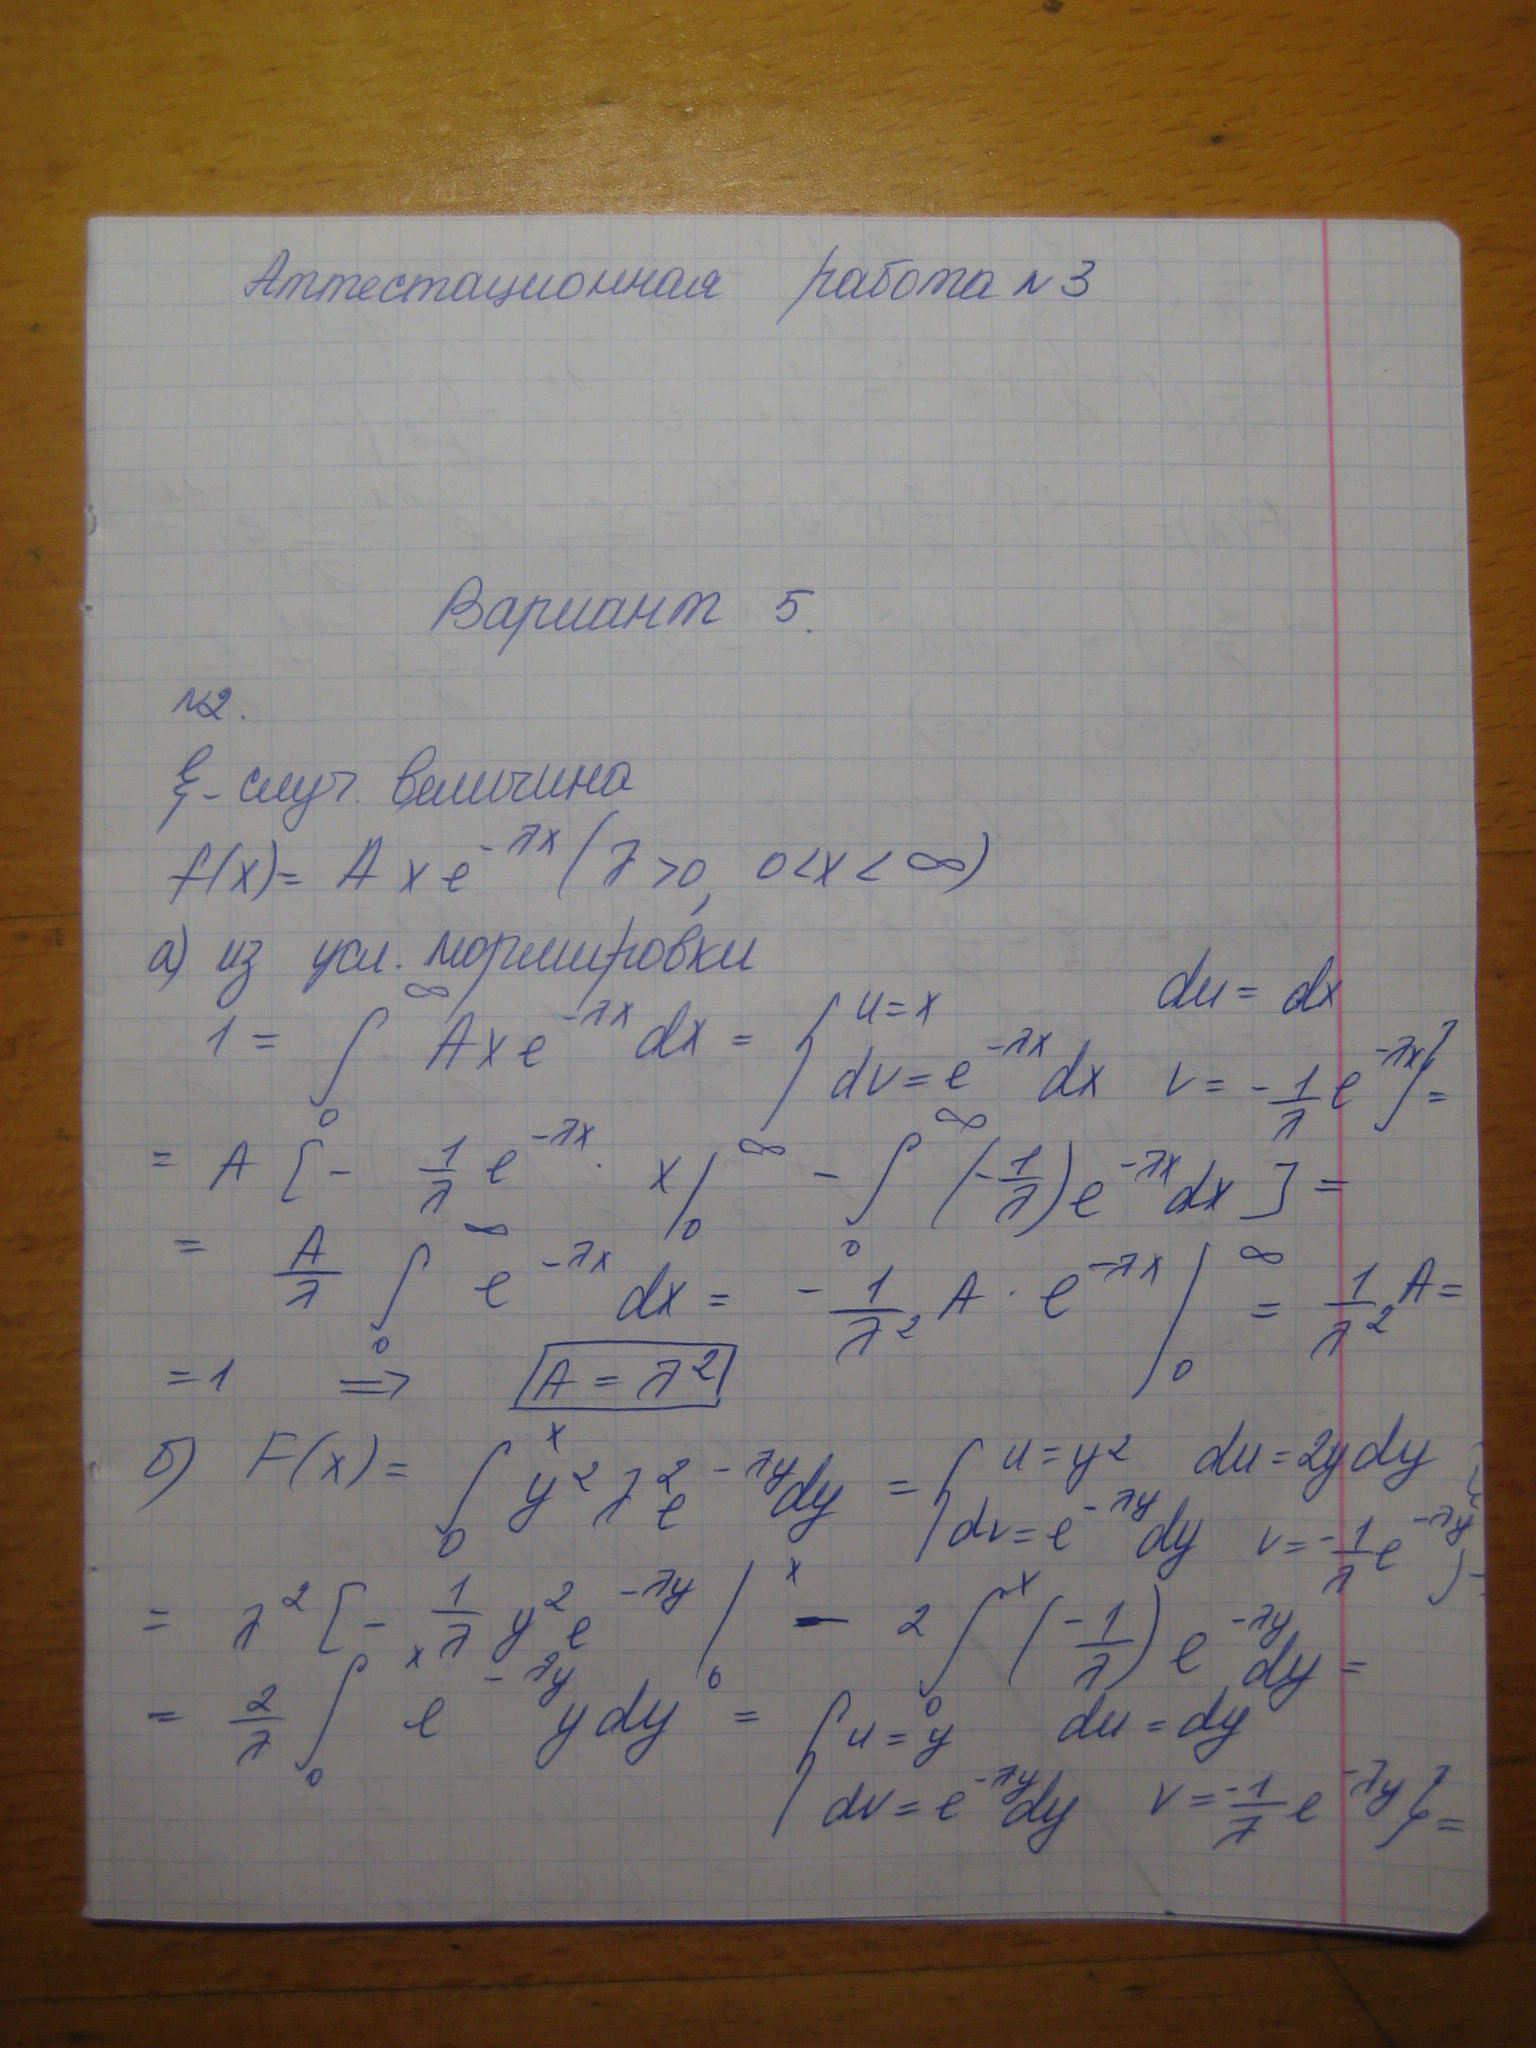 Аттестационная работа №3
Вариант 5.
№2.
ξ - случ. величина
f(x) = A x e^{-λx} (λ>0, 0<x<∞)
а) из усл. нормировки
1 = ∫_0^∞ A x e^{-λx} dx = { u = x du = dx
dv = e^{-λx} dx v = -1/λ e^{-λx} } =
= A [ - 1/λ e^{-λx} · x |_0^∞ - ∫_0^∞ (-1/λ) e^{-λx} dx ] =
= A/λ ∫_0^∞ e^{-λx} dx = - 1/λ² A · e^{-λx} |_0^∞ = 1/λ² A =
= 1 ⇒ A = λ²
б) F(x) = ∫_0^x y² λ² e^{-λy} dy = { u = y² du = 2y dy
dv = e^{-λy} dy v = -1/λ e^{-λy} } =
= λ² [ - 1/λ y² e^{-λy} |_0^x - 2 ∫_0^x (-1/λ) e^{-λy} dy =
= 2/λ ∫_0^x e^{-λy} y dy = { u = y du = dy
dv = e^{-λy} dy v = -1/λ e^{-λy} } =